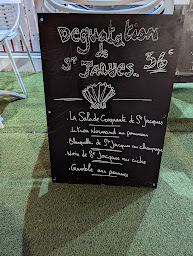 Dégustation
de
St Jaques.
36€
- La Salade Croquante d St Jacques
- Lotion Normand au pommeau
- Blanquette de St Jacques au champagne
- Noix de St Jacques au cidre
- Crumble aux pommes